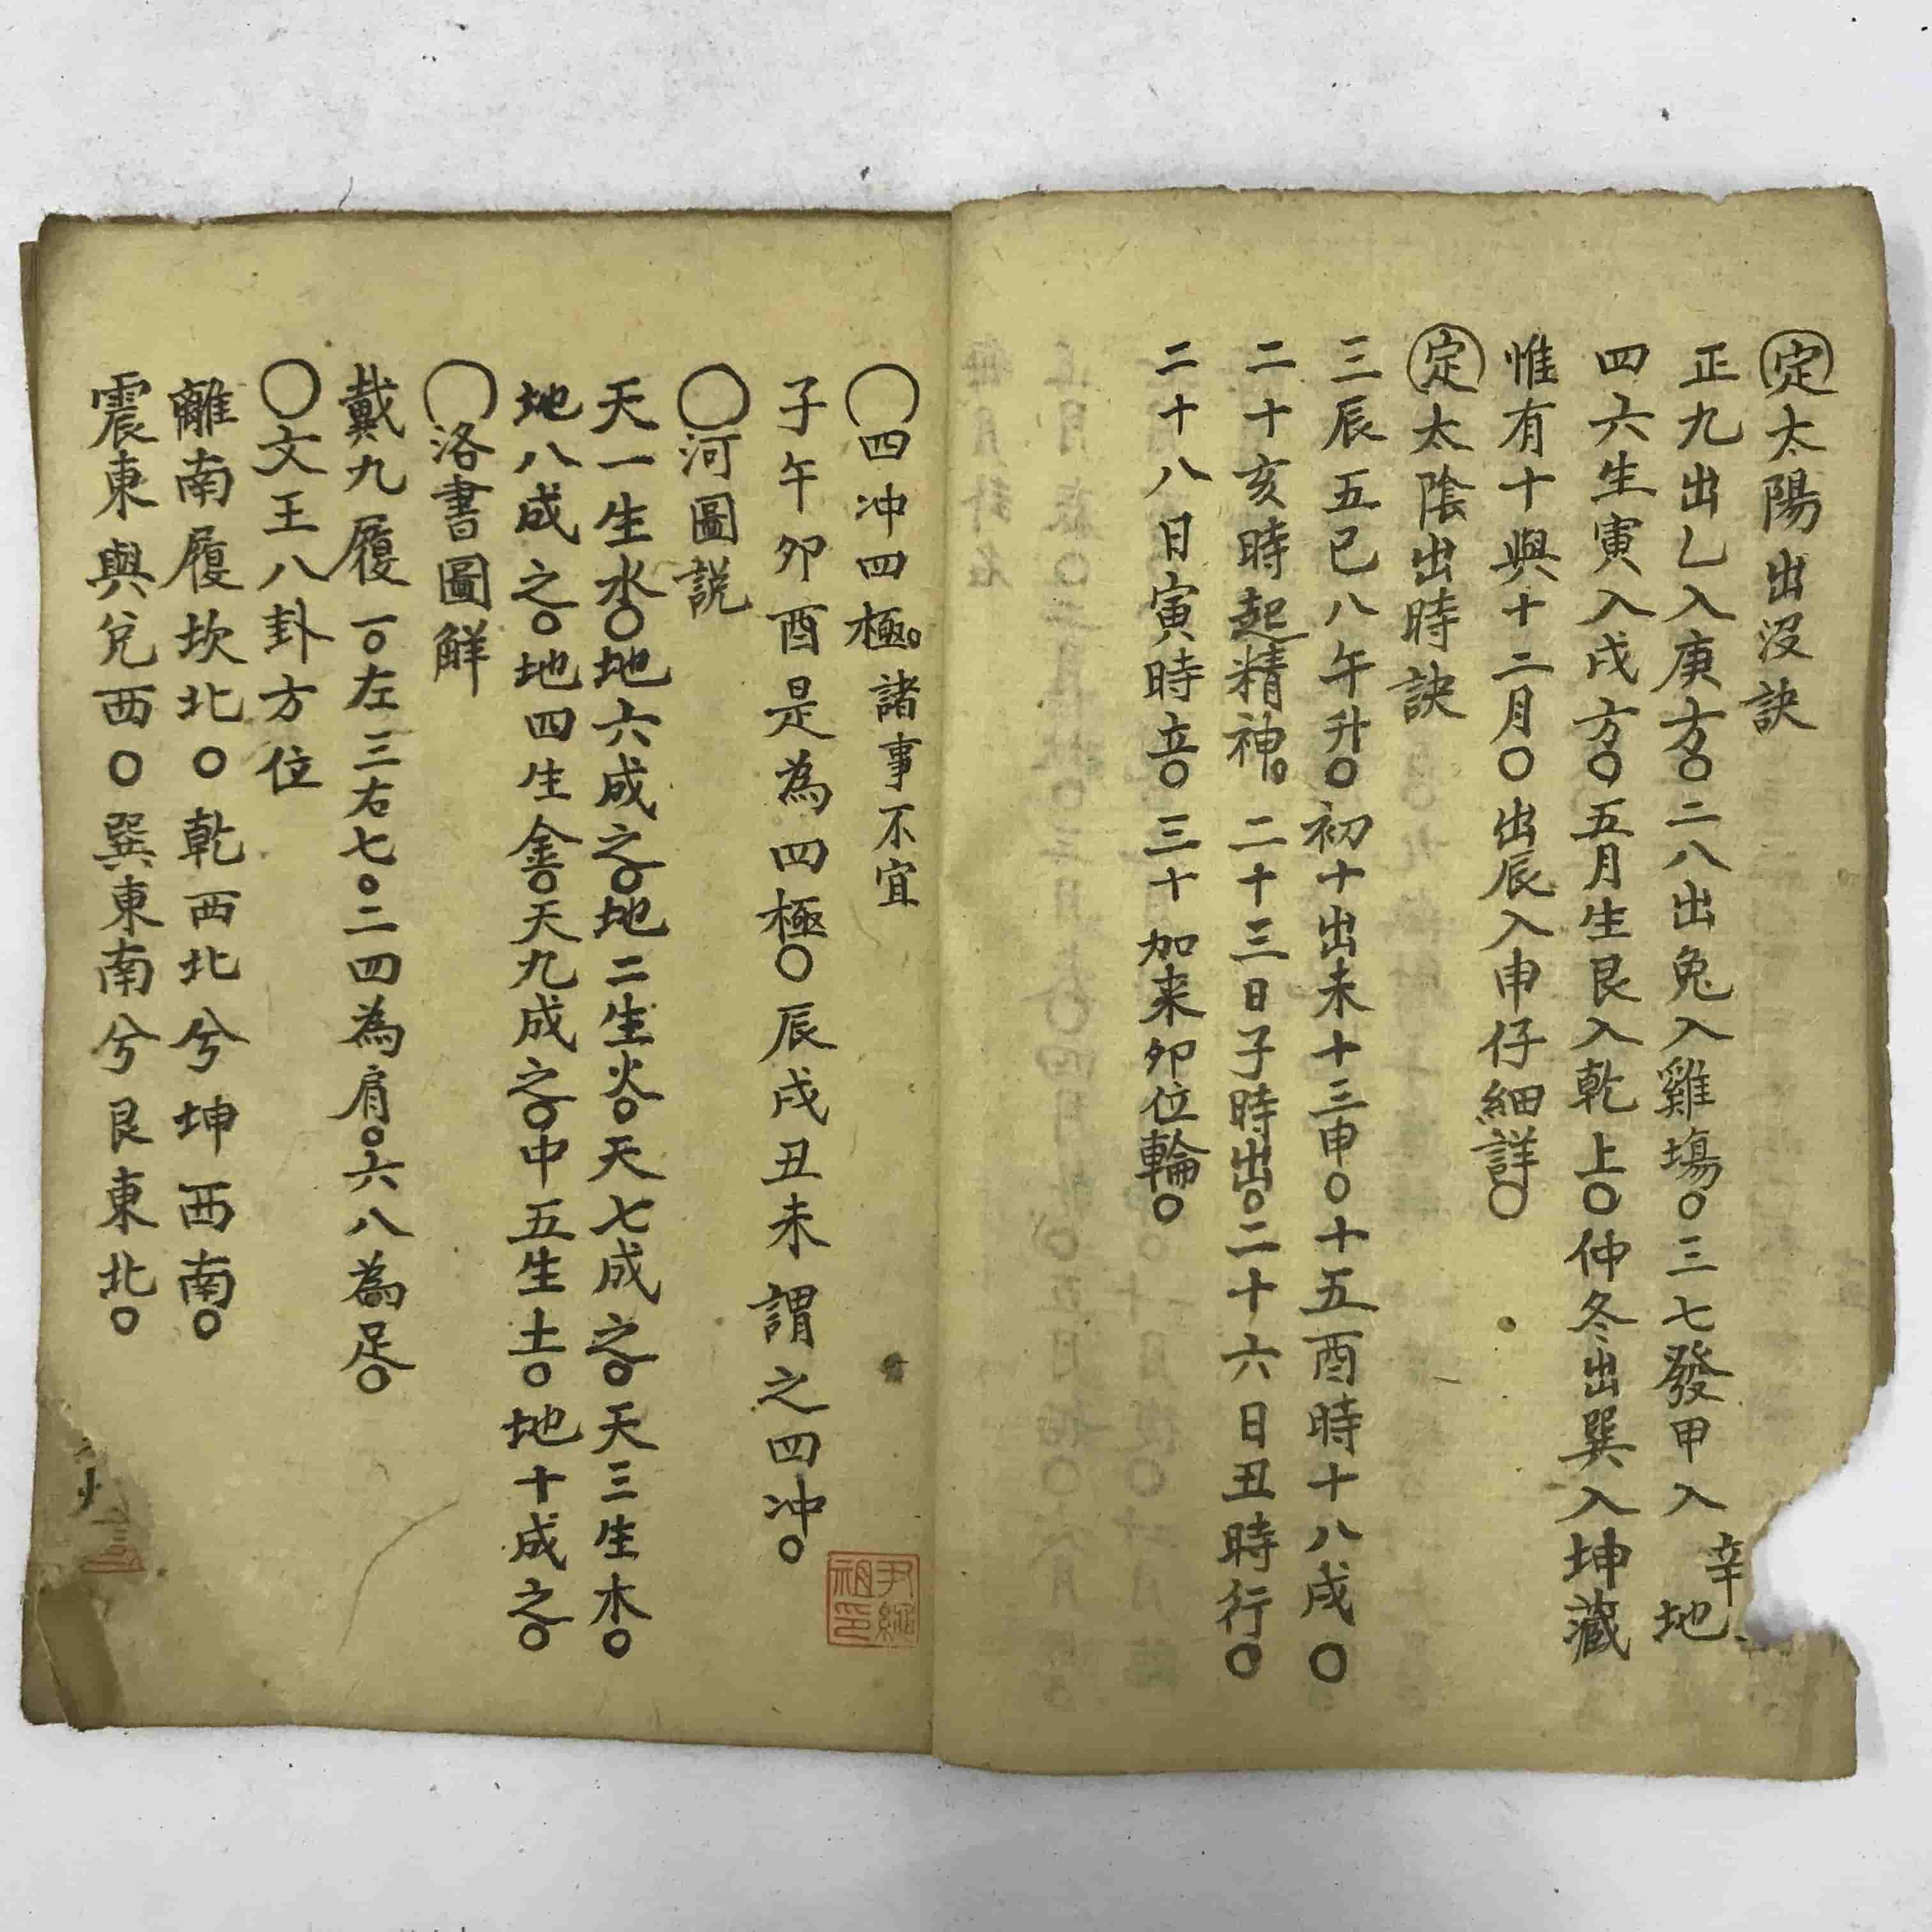 定太陽出没訣
正九出乙入庚方〇二八出兔入雞場〇三七發甲入辛地
四六生寅入戌方〇五月生艮入乾上〇仲冬出巽入坤藏
惟有十與十二月〇出辰入申仔細詳〇
定太陰出時訣
三辰五巳八午升〇初十出未十三申〇十五酉時十八戌〇
二十亥時起精神。二十三日子時出。二十六日丑時行〇
二十八日寅時〇三十加来卯位輪〇
〇四冲四極。諸事不宜
子午卯酉是為四極〇辰戌丑未謂之四冲。
〇河圖説
天一生水〇地六成之〇地二生火〇天七成之〇天三生木〇
地八成之〇地四生金〇天九成之〇中五生土〇地十成之〇
〇洛書圖解
戴九履一〇左三右七〇二四為肩〇六八為足〇
〇文王八卦方位
離南履坎北〇乾西北兮坤西南〇
震東與兌西〇巽東南兮艮東北〇